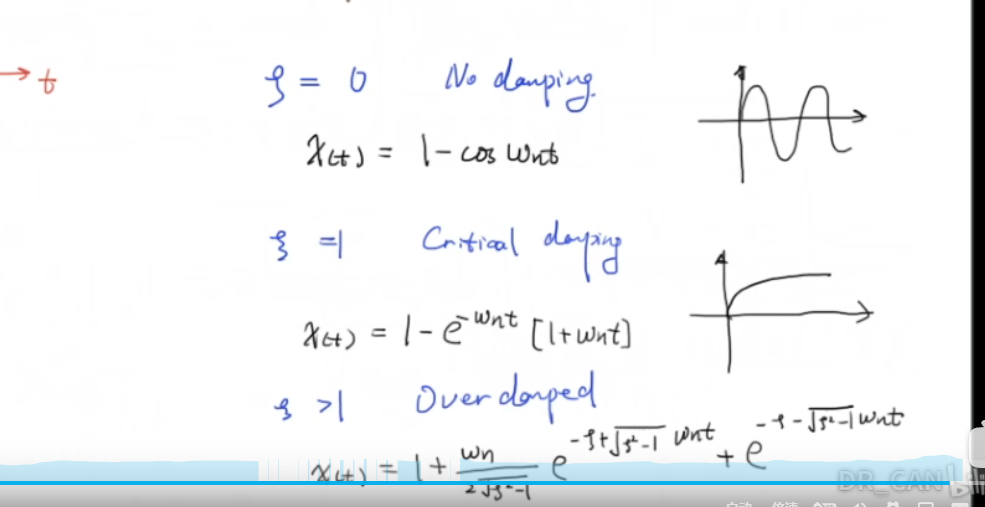 → t
ζ = 0 No damping.
x(t) = 1 - cos ωnt
ζ =1 Critical damping
x(t) = 1 - e^-ωnt [1+ωnt]
ζ >1 Over damped
x(t) = 1 + ωn/2√ζ²-1 e^-ζ+√ζ²-1 ωnt + e^-ζ-√ζ²-1 ωnt
DR_CAN
倍速